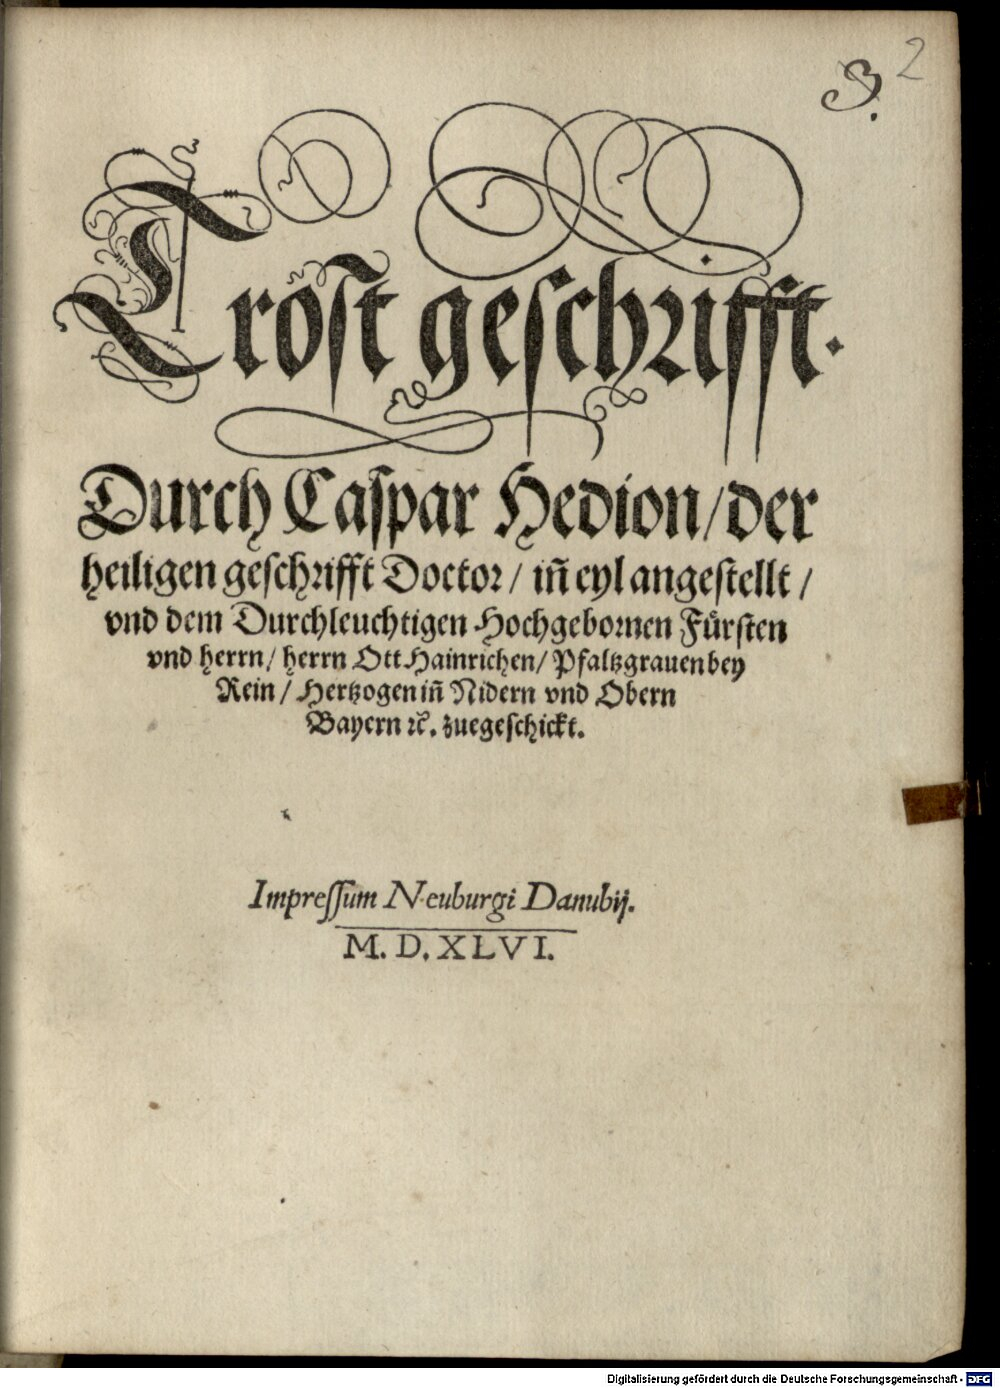 3. 2
Trost geschrifft.
Durch Caspar Hedion/der
heiligen geschrifft Doctor/ iñ eyl angestellt/
vnd dem Durchleuchtigen Hochgebornen Fürsten
vnd herrn/ herrn Ott Hainrichen/ Pfaltzgrauen bey
Rein/ Hertzogen iñ Nidern vnd Obern
Bayern ꝛc̃. zuegeschickt.
Impressum Neuburgi Danubij.
M. D. XLVI.
Digitalisierung gefördert durch die Deutsche Forschungsgemeinschaft - DFG